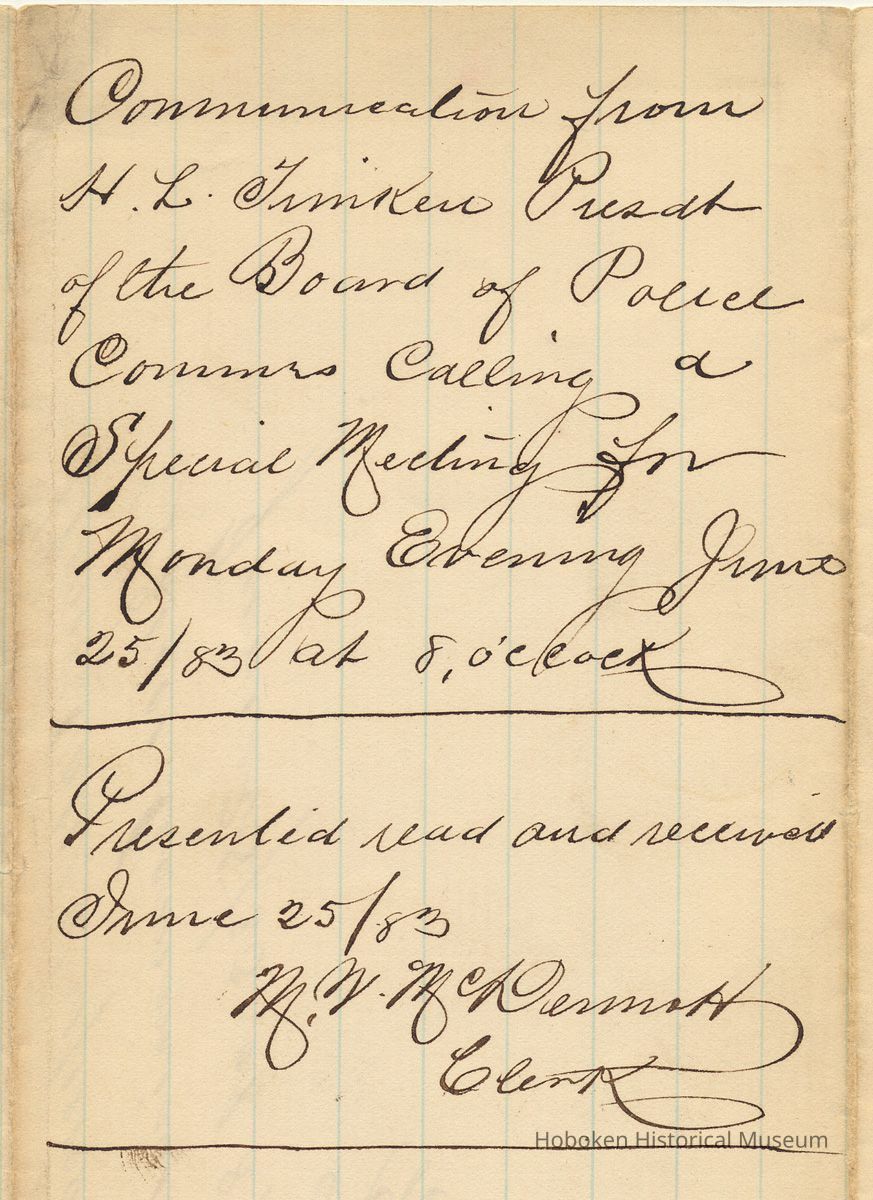 Communication from
H. L. Timken Presdt
of the Board of Police
Commrs Calling a
Special Meeting for
Monday Evening June
25/83 at 8, o'clock
Presented read and received
June 25/83
M. V. McDermott
Clerk
Hoboken Historical Museum